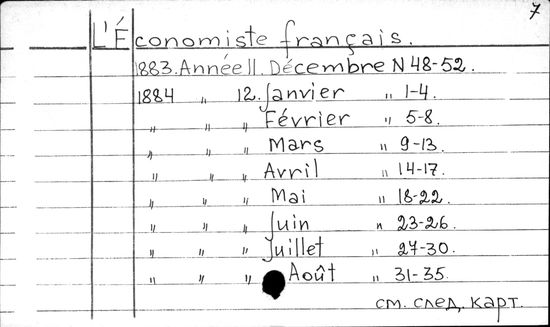 7
L'Économiste français.
1883. Année 11. Décembre N 48-52.
1884 " 12. Janvier " 1-4.
" " " Février " 5-8.
" " " Mars " 9-13.
" " " Avril " 14-17.
" " " Mai " 18-22.
" " " Juin " 23-26.
" " " Juillet " 27-30.
" " " Août " 31-35.
см. след. карт.